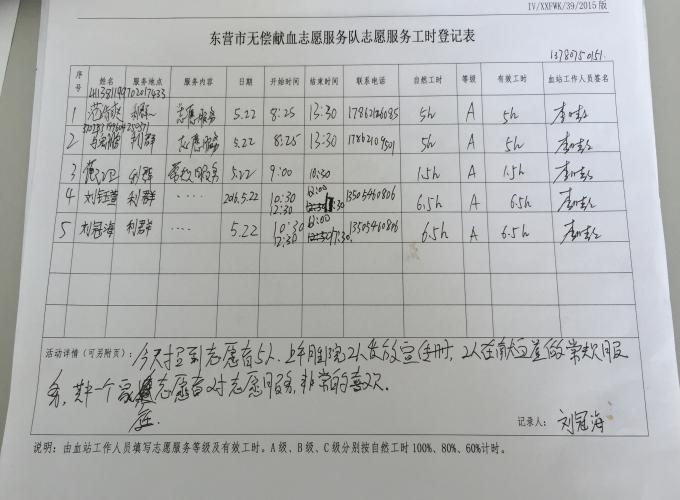 IV/XXFWK/39/2015 版
东营市无偿献血志愿服务队志愿服务工时登记表
序号 姓名 服务地点 服务内容 日期 开始时间 结束时间 联系电话 自然工时 等级 有效工时 血站工作人员签名
1 利群 志愿服务 5.22 8:25 13:30 17862126085 5h A 5h
2 利群 志愿服务 5.22 8:25 13:30 5h A 5h
3 利群 5.22 9:00 10:30 1.5h A 1.5h
4 刘钰萱 利群 ···· 2016.5.22 10:30 12:00 13505460806 6.5h A 6.5h
12:30 17:30
5 刘冠海 利群 ···· 5.22 10:30 12:00 13505460806 6.5h A 6.5h
12:30 17:30
活动详情(可另附页):今天 到志愿者5人,上午 2人发放宣传册,2人在献血
务,其中一个家庭志愿者对志愿服务,非常的喜欢。
记录人:刘冠海
说明:由血站工作人员填写志愿服务等级及有效工时。A 级、B 级、C 级分别按自然工时 100%、80%、60%计时。